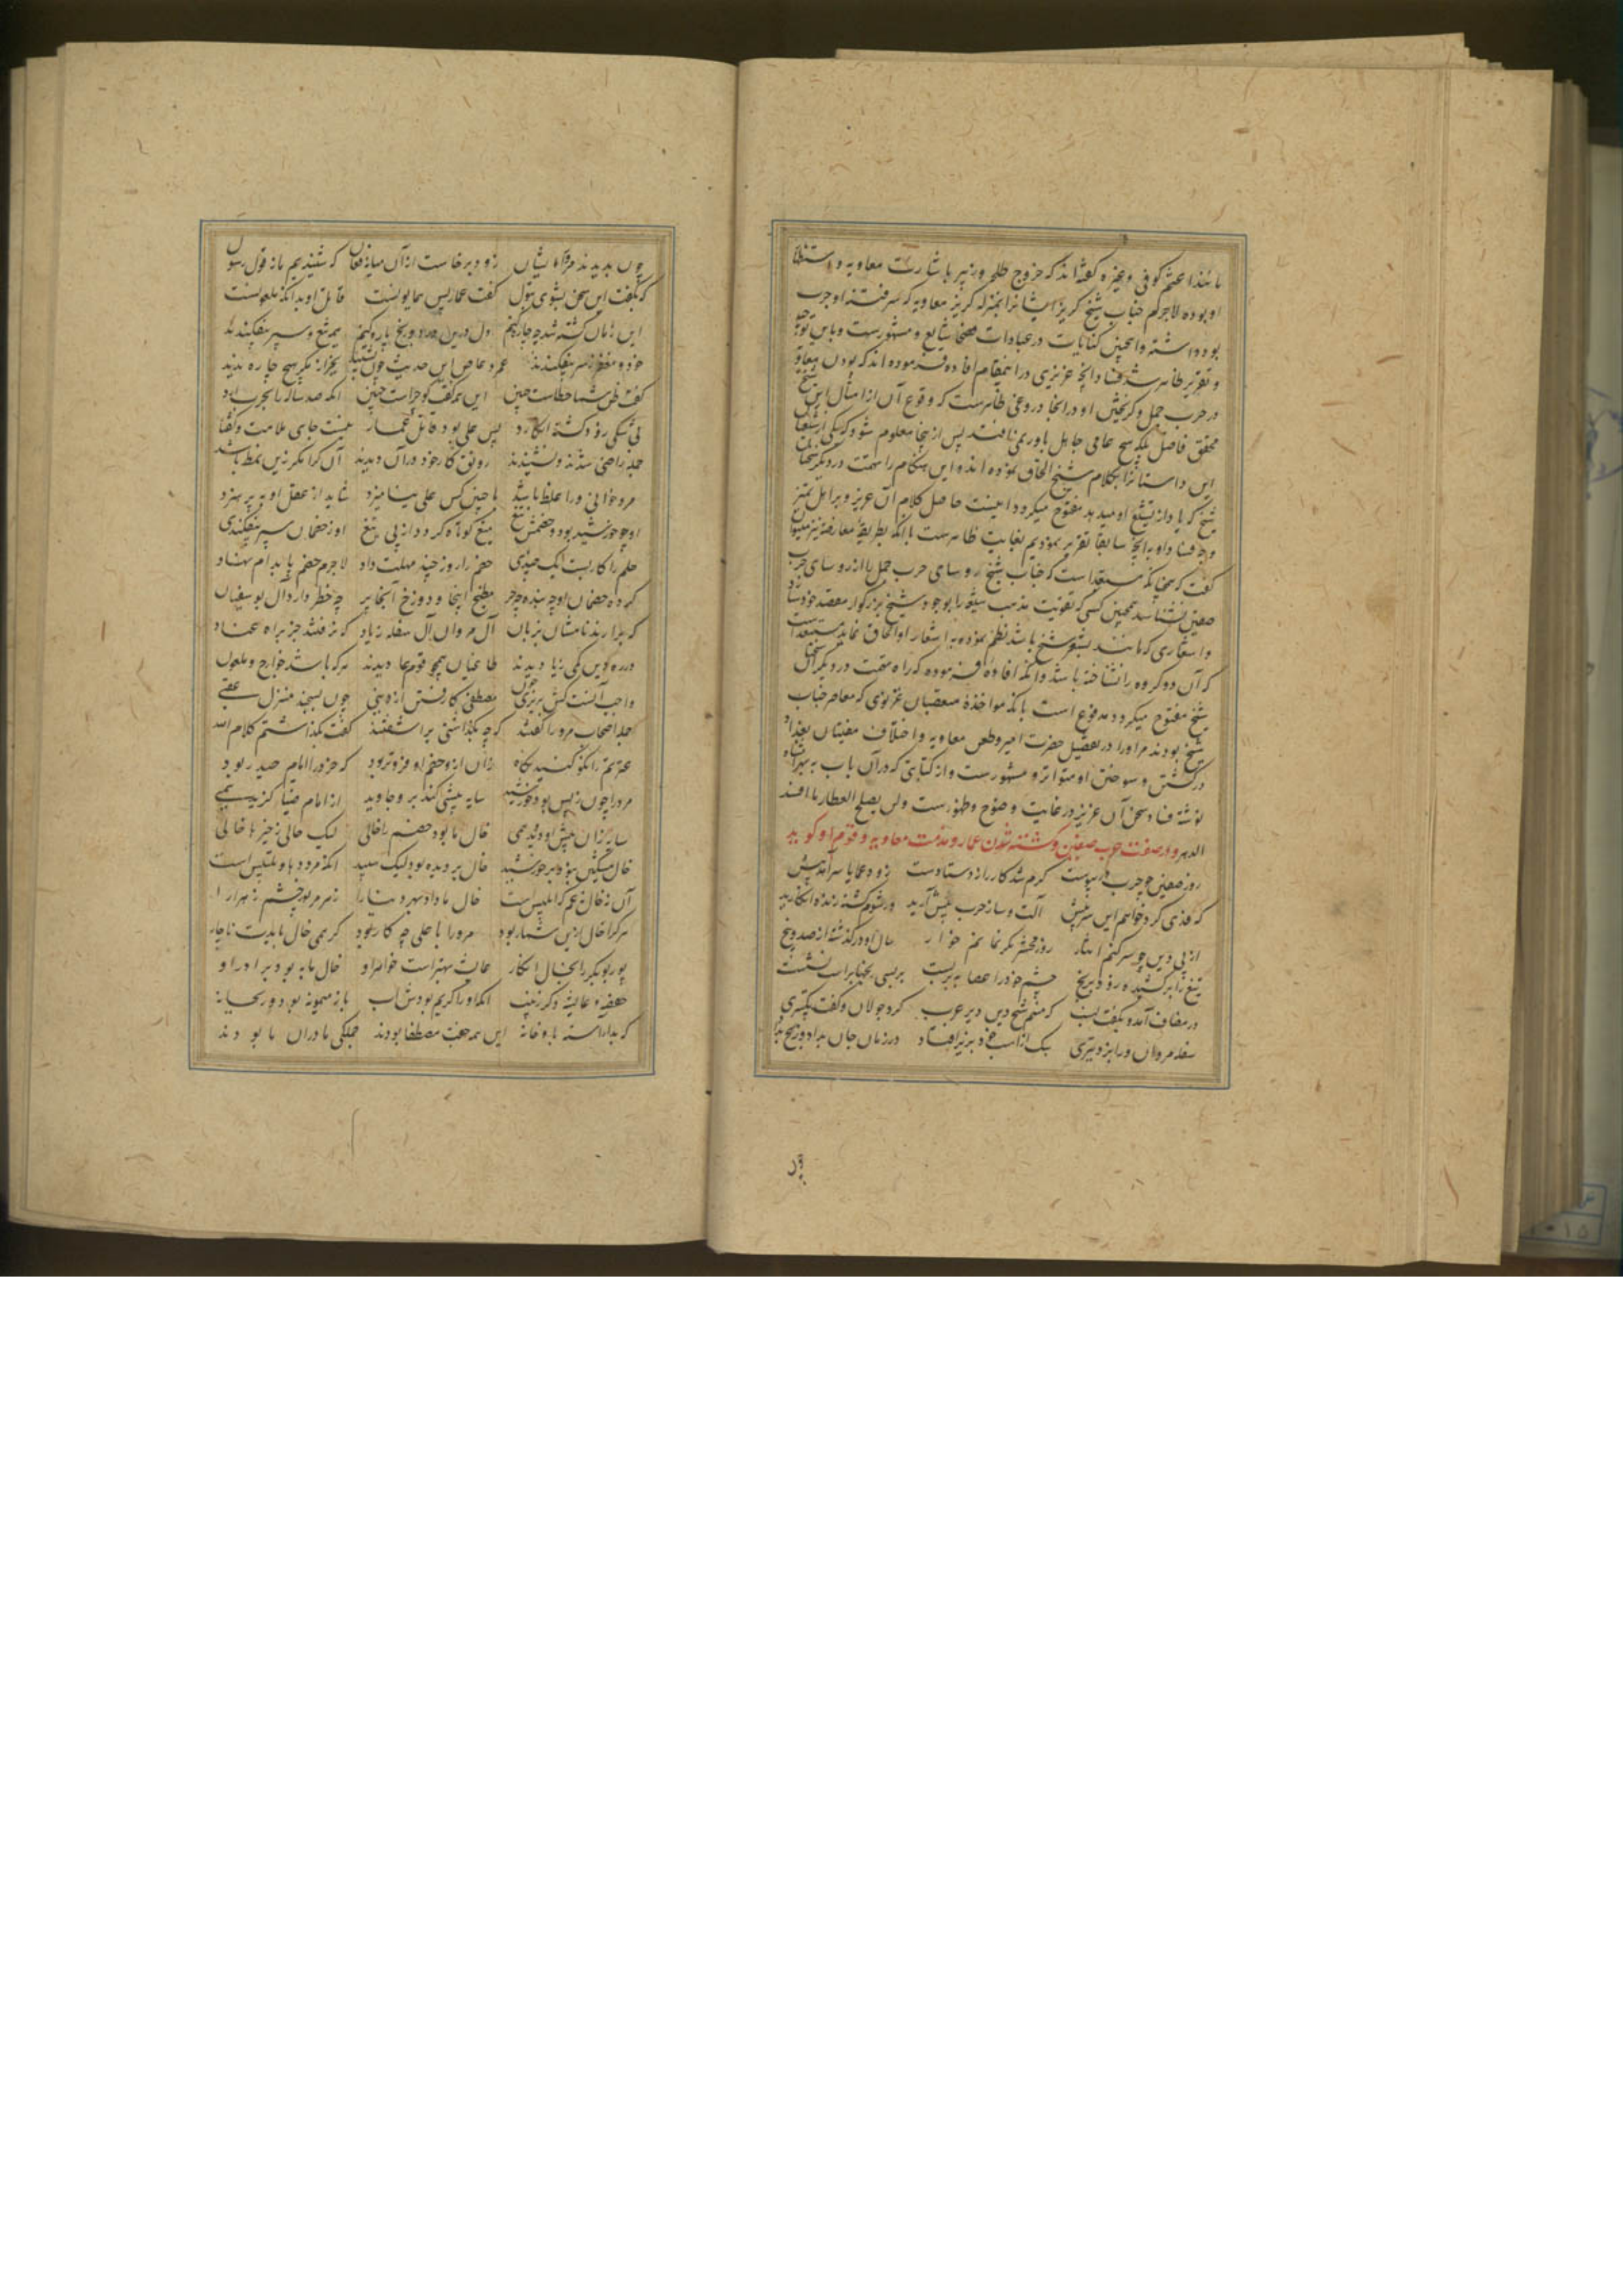 مانند اعثم کوفی و غیره گفته‌اند که خروج طلحه و زبیر باشارت معاویه و
او بوده لاجرم جناب شیخ گریز ایشانرا بمنزله گریز معاویه که سر فتنه او حرب
بود داشته و اینچنین کنایات در عبادات فصحا شایع و مشهورست و باین توجیه
و تقریر ظاهر شد فساد آنچه عزیزی در اینمقام افاده فرموده‌اند که بودن معاویه
در حرب جمل و گریختن او در آنجا دروغی ظاهرست که وقوع آن از امثال این شیخ
محقق فاضل بلکه هیچ عامی جاهل باور نمی‌افتد پس از اینجا معلوم شود که یکی از
این داستانرا بکلام شیخ الحاق نموده‌اند و این هنگام راه تهمت در دیگر سخنان
شیخ که یاد از تشیع او میدهد مفتوح میگردد اینست حاصل کلام آن عزیز و بر اهل تمیز
وجه فساد او بآنچه سابقا تقریر نمودیم بغایت ظاهرست با آنکه بطریق معارضه نیز میتوان
گفت که همچنانکه مستبعد است که جناب شیخ روسای حرب جمل را از روسای حرب
صفین نشناسد همچنین کسی که تقویت مذهب شیعه را بوجود شیخ بزرگوار مقصد خود ساخته
و اشعاری که مانند شعر شیخ باشد نظم نموده به اشعار او الحاق نماید مستبعد است
که آن دو گروه را نشناخته باشد و آنکه افاده فرموده که راه تهمت در دیگر سخنان
شیخ مفتوح میگردد مدفوع است بآنکه مواخذه متعصبان غزنوی که معاصر جناب
شیخ بودند مر او را در تفضیل حضرت امیر و طعن معاویه و اختلاف مفتیان بغداد
در کشتن و سوختن او متواتر و مشهورست و از کتابتی که در آن باب به بهرامشاه
نوشته فساد سخن آن عزیز در غایت وضوح و ظهورست و لن یصلح العطار ما افسد
الدهر و در صفت حرب صفین و کشته شدن عمار و مذمت معاویه و قوم او گوید
روز صفین چو حرب در پیوست گرم شد کارزار دستادست زود عمار یاسر آمد پیش
که فدی کرد خواهم این سر خویش آلت و ساز حرب پیش آرید ورشوم کشته زنده انگارید
از پی دین چو سر کنم ایثار روز محشر مگر نمانم خوار سال او در گذشته از صد و پنج
تیغ را بر کشیده رو برنج چشم خود را عصابه بربست بر یکی جنبیت‌ براست نشست
در مصاف آمد و بگفت نسب که منم شیخ دین و پیر عرب کرد جولان و گفت تکبیری
سفله مروان ورا بزد تیری یک از اسب خود بزیر افتاد در زمان جان بداد و رنج
چون بدیدند مر ورا ایشان زود برخاست از آن میانه فغان که شنیدیم ما ز قول رسول
که بگفت این سخن بشوی بتول گفت عمار بس همایونست قاتل او بدانکه ملعونست
این زمان کشته شد چه چاره کنیم دل و دین در و رنج پاره کنیم همه تیغ و سپر بیفکندند
خود و مغفر ز سر بیفکندند عمرو عاص این حدیث چون بشنید بجز از مکر هیچ چاره ندید
گفت ظن شما خطاست چنین این همه گفت و گو چراست چنین آنکه صد ساله را بحرب آورد
بی شکی زود کشته انگارد پس علی بود قاتل عمار نیست جای ملامت و گفتار
جمله راضی شدند و نشنیدند رونق کار خود در آن دیدند آن کرا مکر زین نمط باشد
مرد خوانی ورا غلط باشد با چنین کس علی نیامیزد شاید از عقل او بپرهیزد
او چو خورشید بود و خصمش میغ میغ کوتاه کردد از پی تیغ او ز خصمان سپر نیفکندی
حلم را کار بست یک چندی خصم را روز چند مهلت داد لاجرم خصم پا بدام نهاد
کرده خصمان او چه بنده چه حر مطبخ اینجا و دوزخ آنجا پر چه خطر دارد آل بوسفیان
که برارند نامشان بزبان آل مروان و آل سفله زیاد که نرفتند جز براه عناد
در ره دین کمی زیا دیدند طاعنان همچو قوم عا دیدند هرکه باشد خوارج و ملعون
واجب آنست کش بریزی خون مصطفی گاه رفتن از دنیی چون بسیجد منزل عقبی
جمله اصحاب مر ورا گفتند که چه بگذاشتی بر آشفتند گفت بگذاشتم کلام الله
عترتم را نکو کنید نگاه زآن ازو خصم او فزوتر بود که خزو را امام صدر بود
مر ورا چون ز پس بود خورشید سایه پیشی کند برو جاوید از امام ضیا گزید همی
سایه زآن پیش او دوید همی خال ما بود خصم را خالی لیک خالی ز خیرها خالی
خال مشکین نبود بر خورشید خال بر دیده بود لیک سپید آنکه مردود با و تلبیس است
آن نه خال و نه عم که ابلیس است خال ما داد بهر دنیا را زهر مر نور چشم زهرا را
هر کرا خال ازین شمار بود مر ورا با علی چه کار بود گر همی خال بایدت ناچار
پور بوبکر را بخال انگار عایشه بهتر است خواهر او خال ما به بود برادر او
حفصه و عایشه دگر زینب آنکه او را کریم بود نسب باز میمونه بود و ریحانه
که بد آراسته با و خانه این همه جفت مصطفا بودند جملگی مادران ما بودند